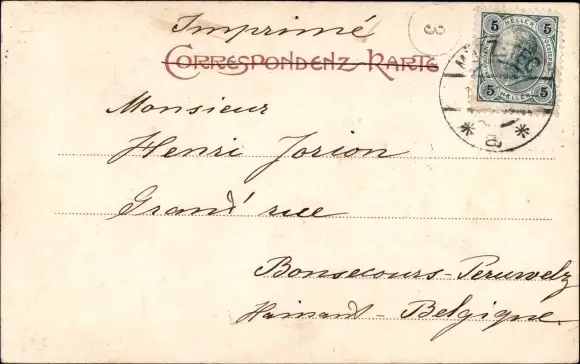 Imprimé
3
CORRESPONDENZ-KARTE
5 HELLER 5
5 HELLER 5
a
Monsieur
Henri Jorion
Grand' rue
Bonsecours-Peruwelz
Hainant - Belgique.